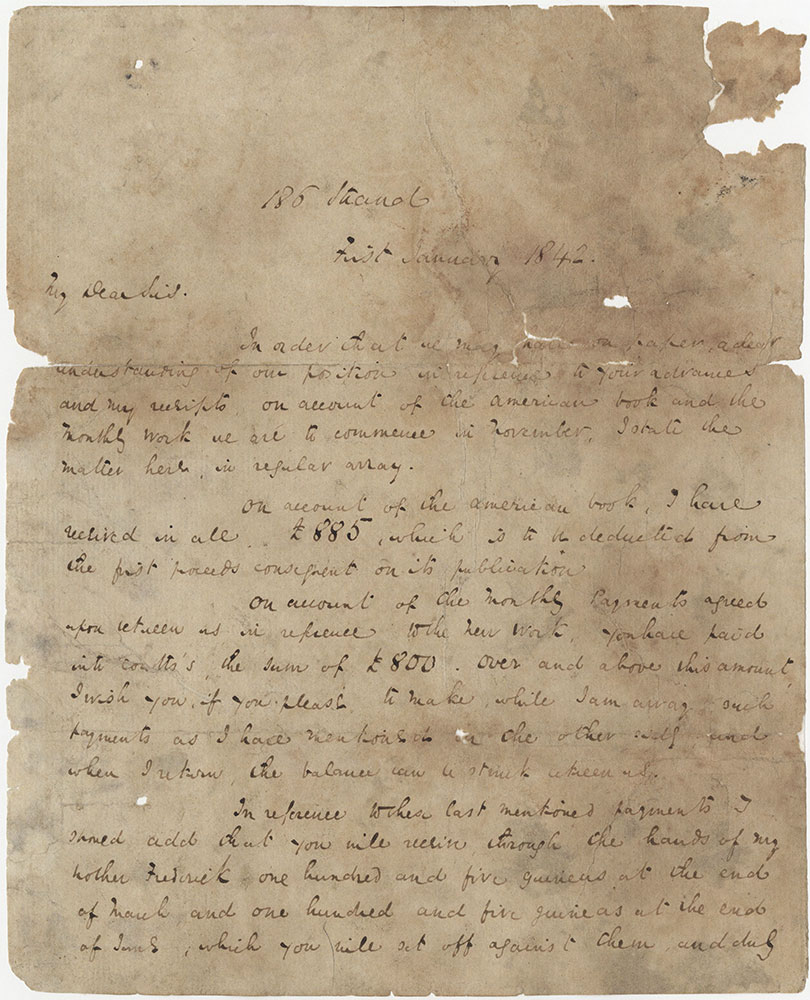 186 Strand
First January 1842.
My Dear Sirs.
In order that we may have on paper, a clear
understanding of our position in reference to your advances
and my receipts on account of the American book and the
monthly work we are to commence in November, I state the
matter here, in regular array.
On account of the American book, I have
received in all £885, which is to be deducted from
the first proceeds consequent on its publication
On account of the Monthly Payments agreed
upon between us in reference to the New Work, you have paid
into Coutts's, the sum of £800. Over and above this amount,
I wish you, if you please to make, while I am away such
payments as I have mentioned in the other and
when I return, the balance can be struck between us.
In reference to these last mentioned payments I
should add that you will receive through the hands of my
brother Frederick one hundred and five guineas at the end
of March and one hundred and five guineas at the end
of June, which you will set off against them, and duly